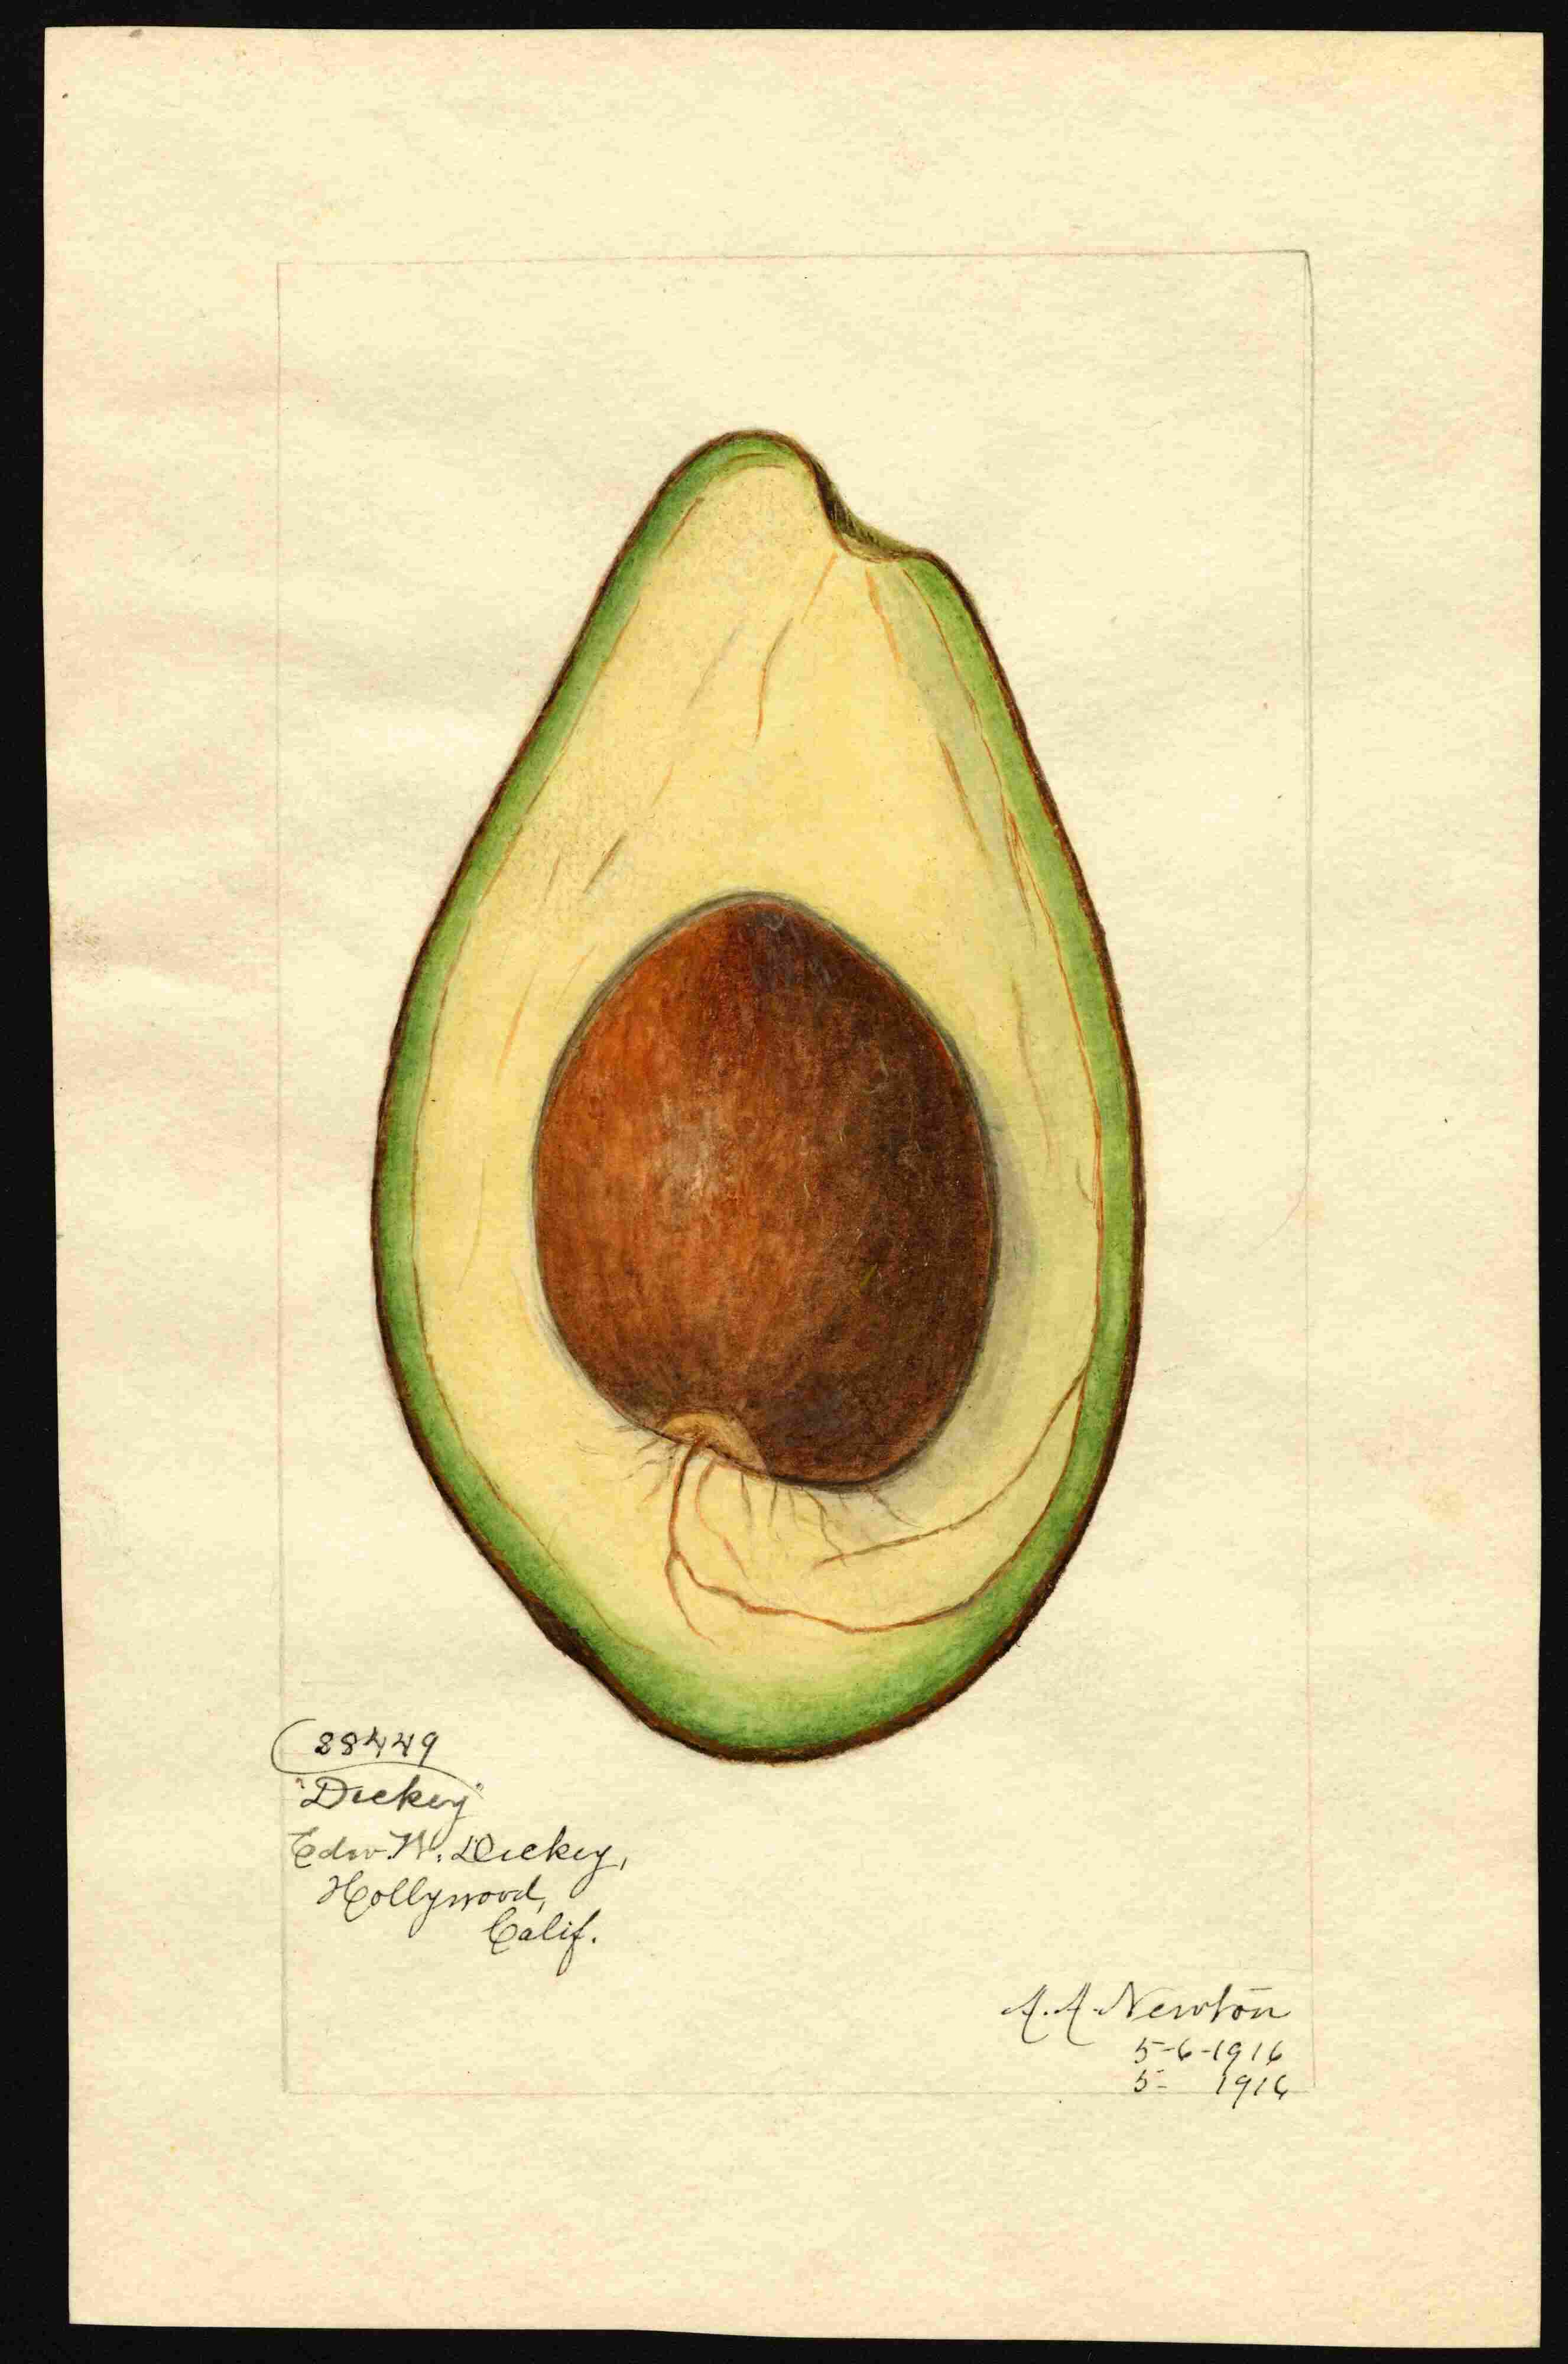 88449
"Dickey"
Edw. W. Dickey,
Hollywood,
Calif.
A. A. Newton
5-6-1916
5- 1916